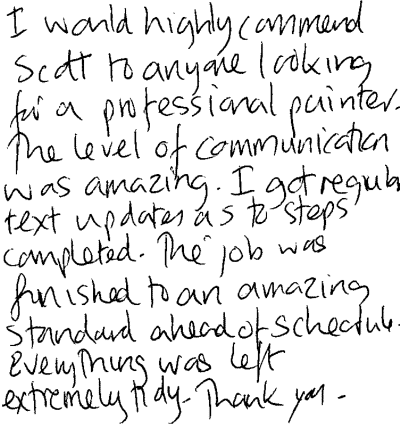 I would highly commend
Scott to anyone looking
for a professional painter.
The level of communication
was amazing. I got regular
text updates as to steps
completed. The job was
finished to an amazing
standard ahead of schedule.
Everything was left
extremely tidy. Thank you.